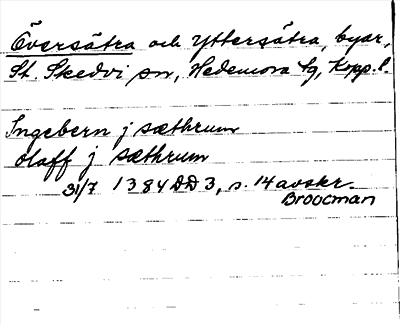 Översätra och Yttersätra, byar,
St. Skedvi sn, Hedemora tg, Kopp. l.
Ingebern j sæthrum
Olaff j sæthrum
31/7 1384 DD 3, s. 14 avskr.
Broocman